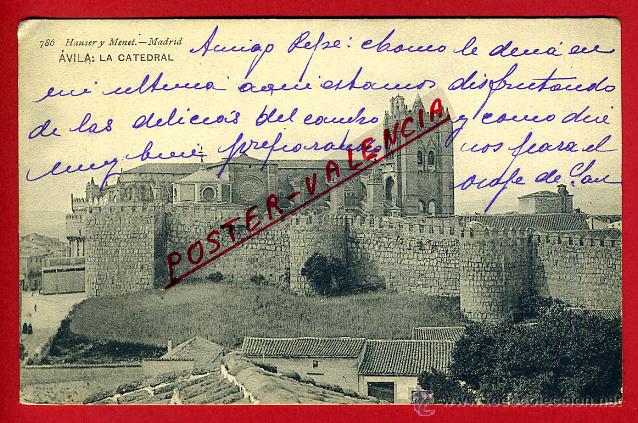 786 Hauser y Menet.—Madrid
ÁVILA: LA CATEDRAL
Amigo Pepe: como le dená en
mi ultima aqui estamos disfrutando
de las delicias del campo y como diré
muy bien preparando nos para el
viaje de San
POSTER-VALENCIA
todocoleccion.net